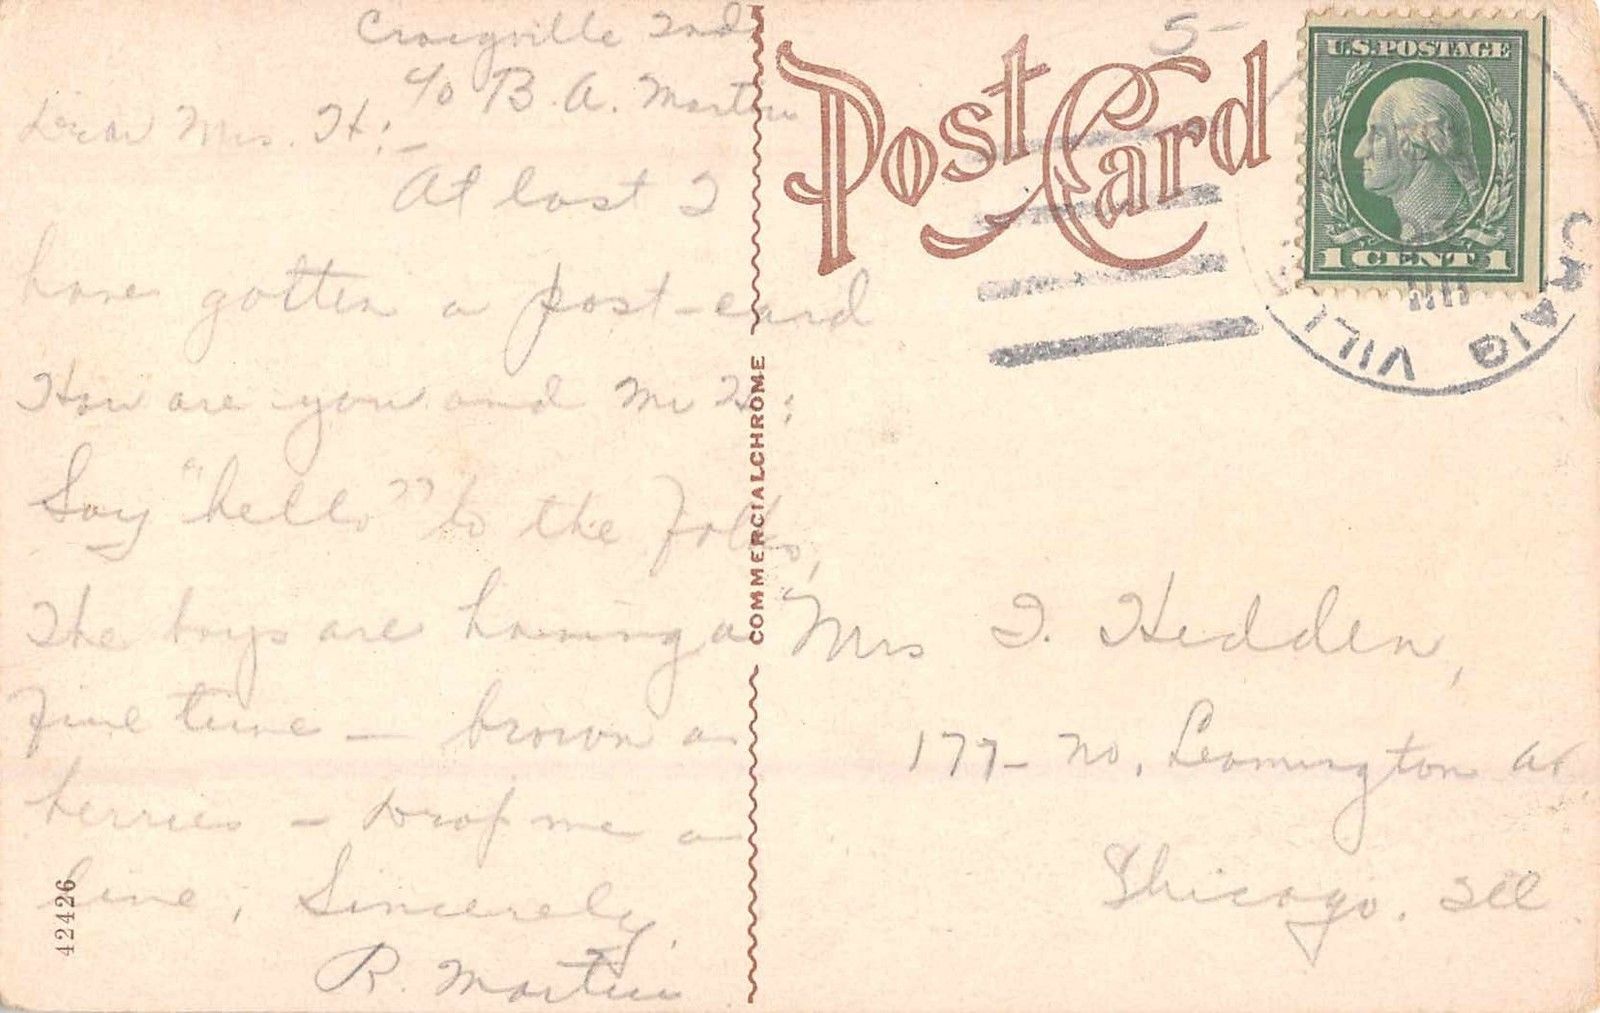 Craigville Ind
c/o B. A. Martin
Dear Mrs. H:-
At last I
have gotten a post-card
How are you and Mr H:
Say "hello" to the Folks,
The boys are having a
fine time - brown as
berries - Drop me a
line, Sincerely,
R. Martin
42426
COMMERCIALCHROME
Post Card
5-
U.S. POSTAGE
1 CENT 1
CRAIGVILL
Mrs I. Hedden,
177- No. Leamington av
Chicago. Ill